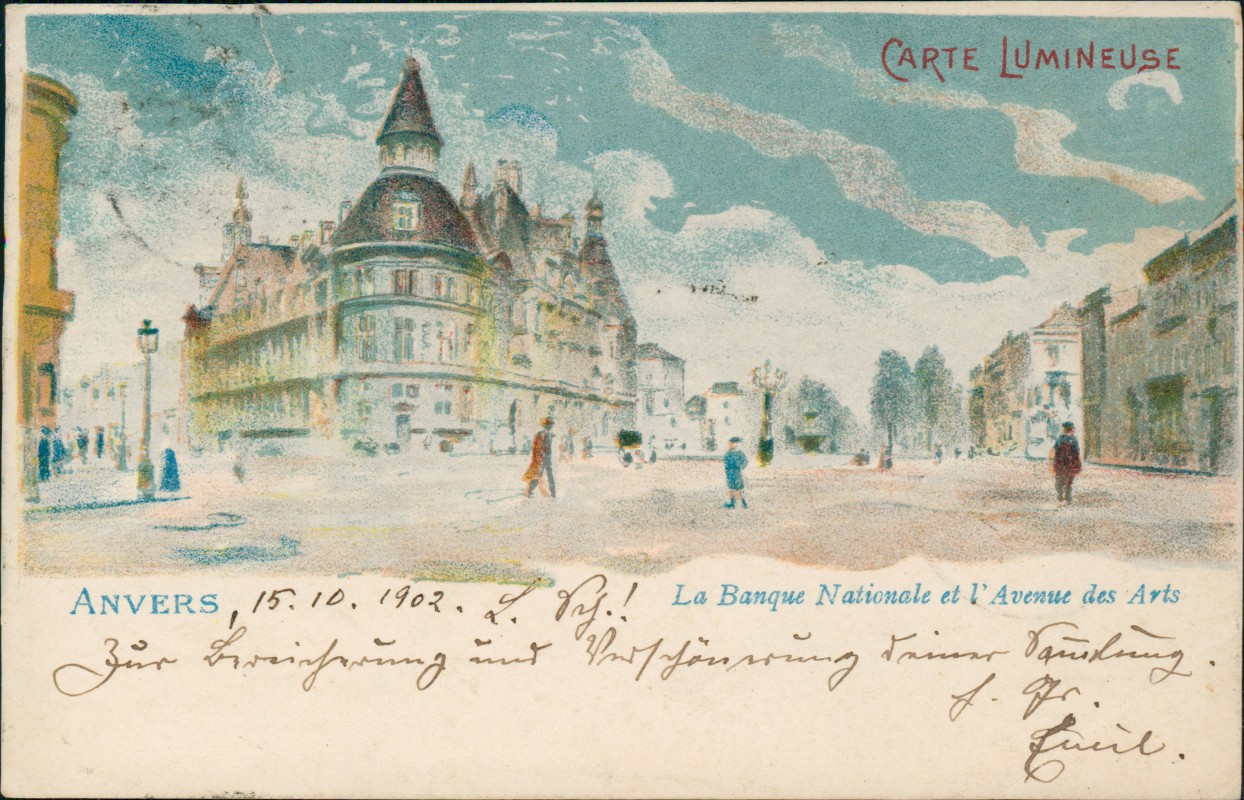 CARTE LUMINEUSE
ANVERS, 15. 10. 1902. L. Sch.!
La Banque Nationale et l'Avenue des Arts
Zur Bereicherung und Verschönerung deiner Samlung.
h. Gr.
Emil.